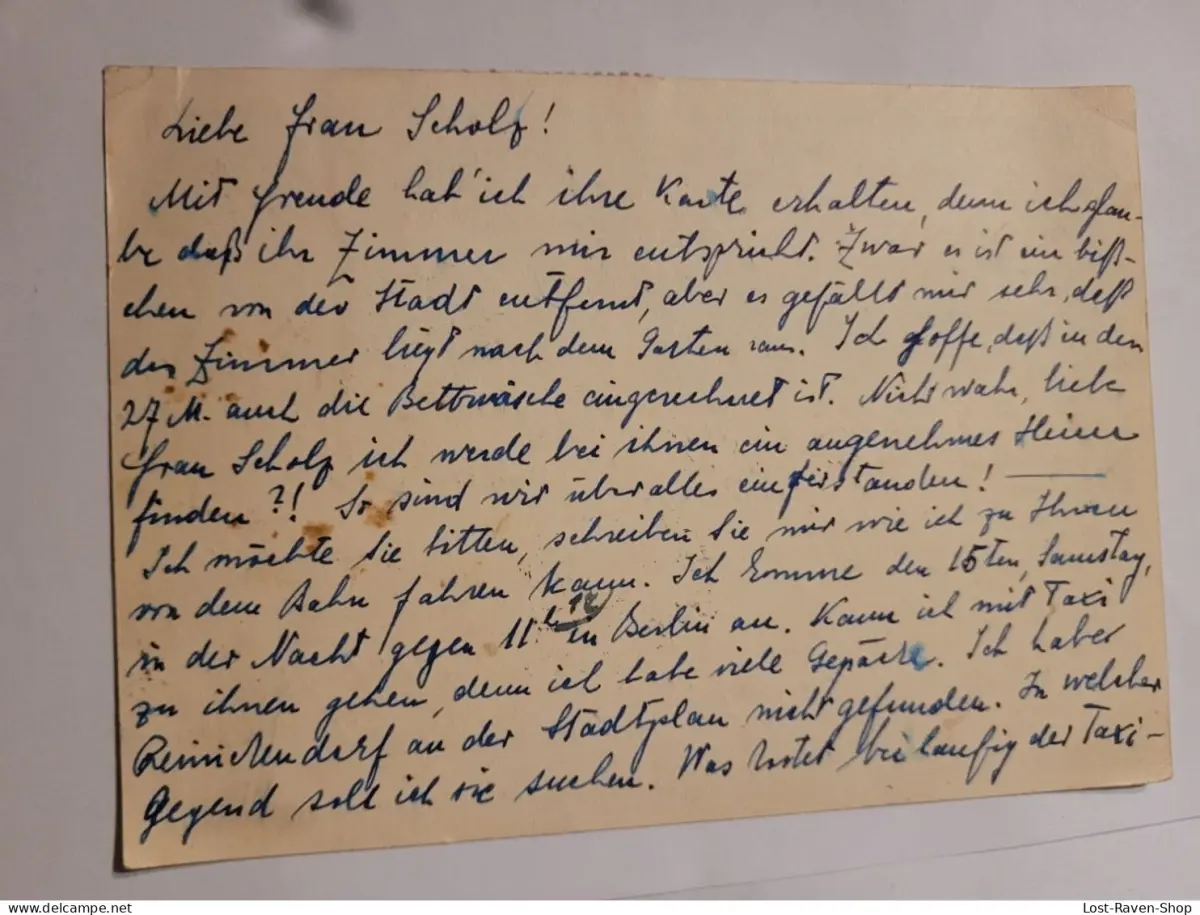 Liebe Frau Scholz!
Mit Freude hab' ich ihre Karte erhalten, denn ich glau-
be daß ihr Zimmer mir entspricht. Zwar es ist ein biß-
chen von der Stadt entfernt, aber es gefällt mir sehr, daß
das Zimmer liegt nach dem Garten raus. Ich hoffe, daß in den
27 M. auch die Bettwäsche eingerechnet ist. Nicht wahr, liebe
Frau Scholz ich werde bei ihnen ein angenehmes Heim
finden?! So sind wir über alles einferstanden! —
Ich möchte Sie bitten, schreiben Sie mir wie ich zu Ihnen
von dem Bahn fahren kann. Ich komme den 15ten, Samstag,
in der Nacht gegen 11h 12 in Berlin an. Kann ich mit Taxi
zu ihnen gehen, denn ich habe viele Gepäcke. Ich haber
Reinickendorf an der Stadtplan nicht gefunden. In welcher
Gegend soll ich sie suchen. Was kostet beilaufig der Taxi-
Lost-Raven-Shop